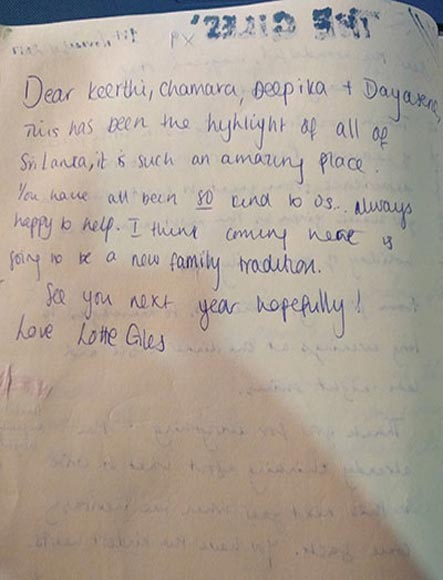 Dear Keerthi, Chamara, Deepika + Dayasena,
This has been the highlight of all of
Sri Lanka, it is such an amazing place.
You have all been so kind to us.. always
happy to help. I think coming here is
going to be a new family tradition.
See you next year hopefully!
Love Lotte Giles